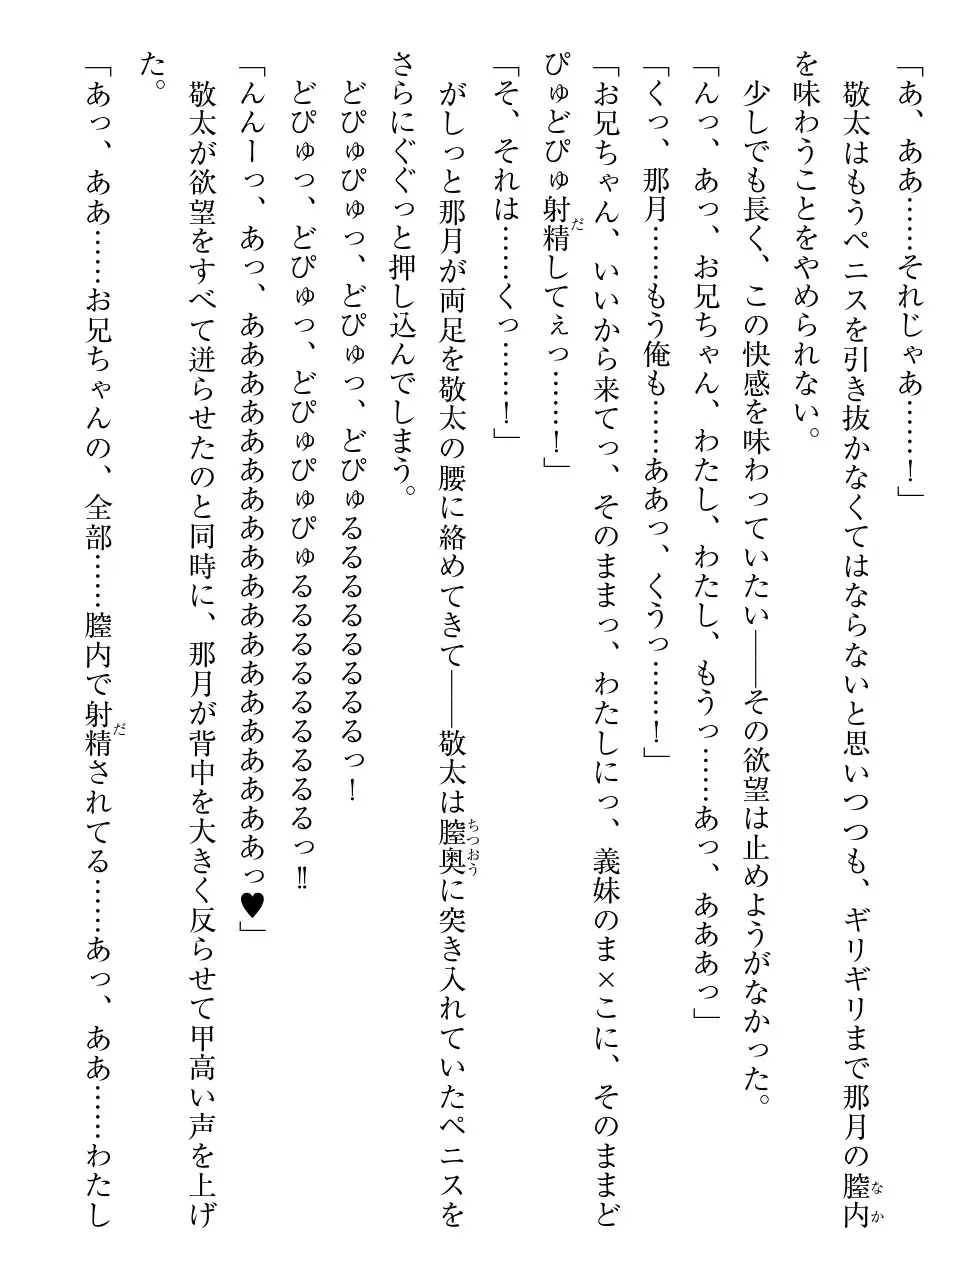 「あ、ああ……それじゃあ……！」
　敬太はもうペニスを引き抜かなくてはならないと思いつつも、ギリギリまで那月の膣内（なか）
を味わうことをやめられない。
　少しでも長く、この快感を味わっていたい――その欲望は止めようがなかった。
「んっ、あっ、お兄ちゃん、わたし、わたし、もうっ……あっ、あああっ」
「くっ、那月……もう俺も……ああっ、くうっ……！」
「お兄ちゃん、いいから来てっ、そのままっ、わたしにっ、義妹のま×こに、そのままど
ぴゅどぴゅ射精（だ）してぇっ……！」
「そ、それは……くっ……！」
　がしっと那月が両足を敬太の腰に絡めてきて――敬太は膣奥（ちつおう）に突き入れていたペニスを
さらにぐぐっと押し込んでしまう。
　どぴゅぴゅっ、どぴゅっ、どぴゅるるるるるるるっ！
　どぴゅっ、どぴゅっ、どぴゅぴゅぴゅるるるるるるるるっ‼
「んんーっ、あっ、あああああああああああああああああああっ♥」
　敬太が欲望をすべて迸らせたのと同時に、那月が背中を大きく反らせて甲高い声を上げ
た。
「あっ、ああ……お兄ちゃんの、全部……膣内で射精（だ）されてる……あっ、ああ……わたし